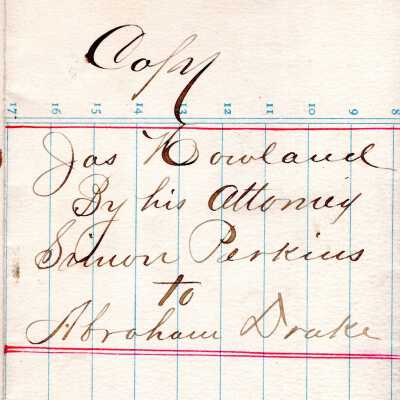 Copy
17 16 15 14 13 12 11 10 9 8
Jas Howland
By his Attorney
Simon Perkins
to
Abraham Drake